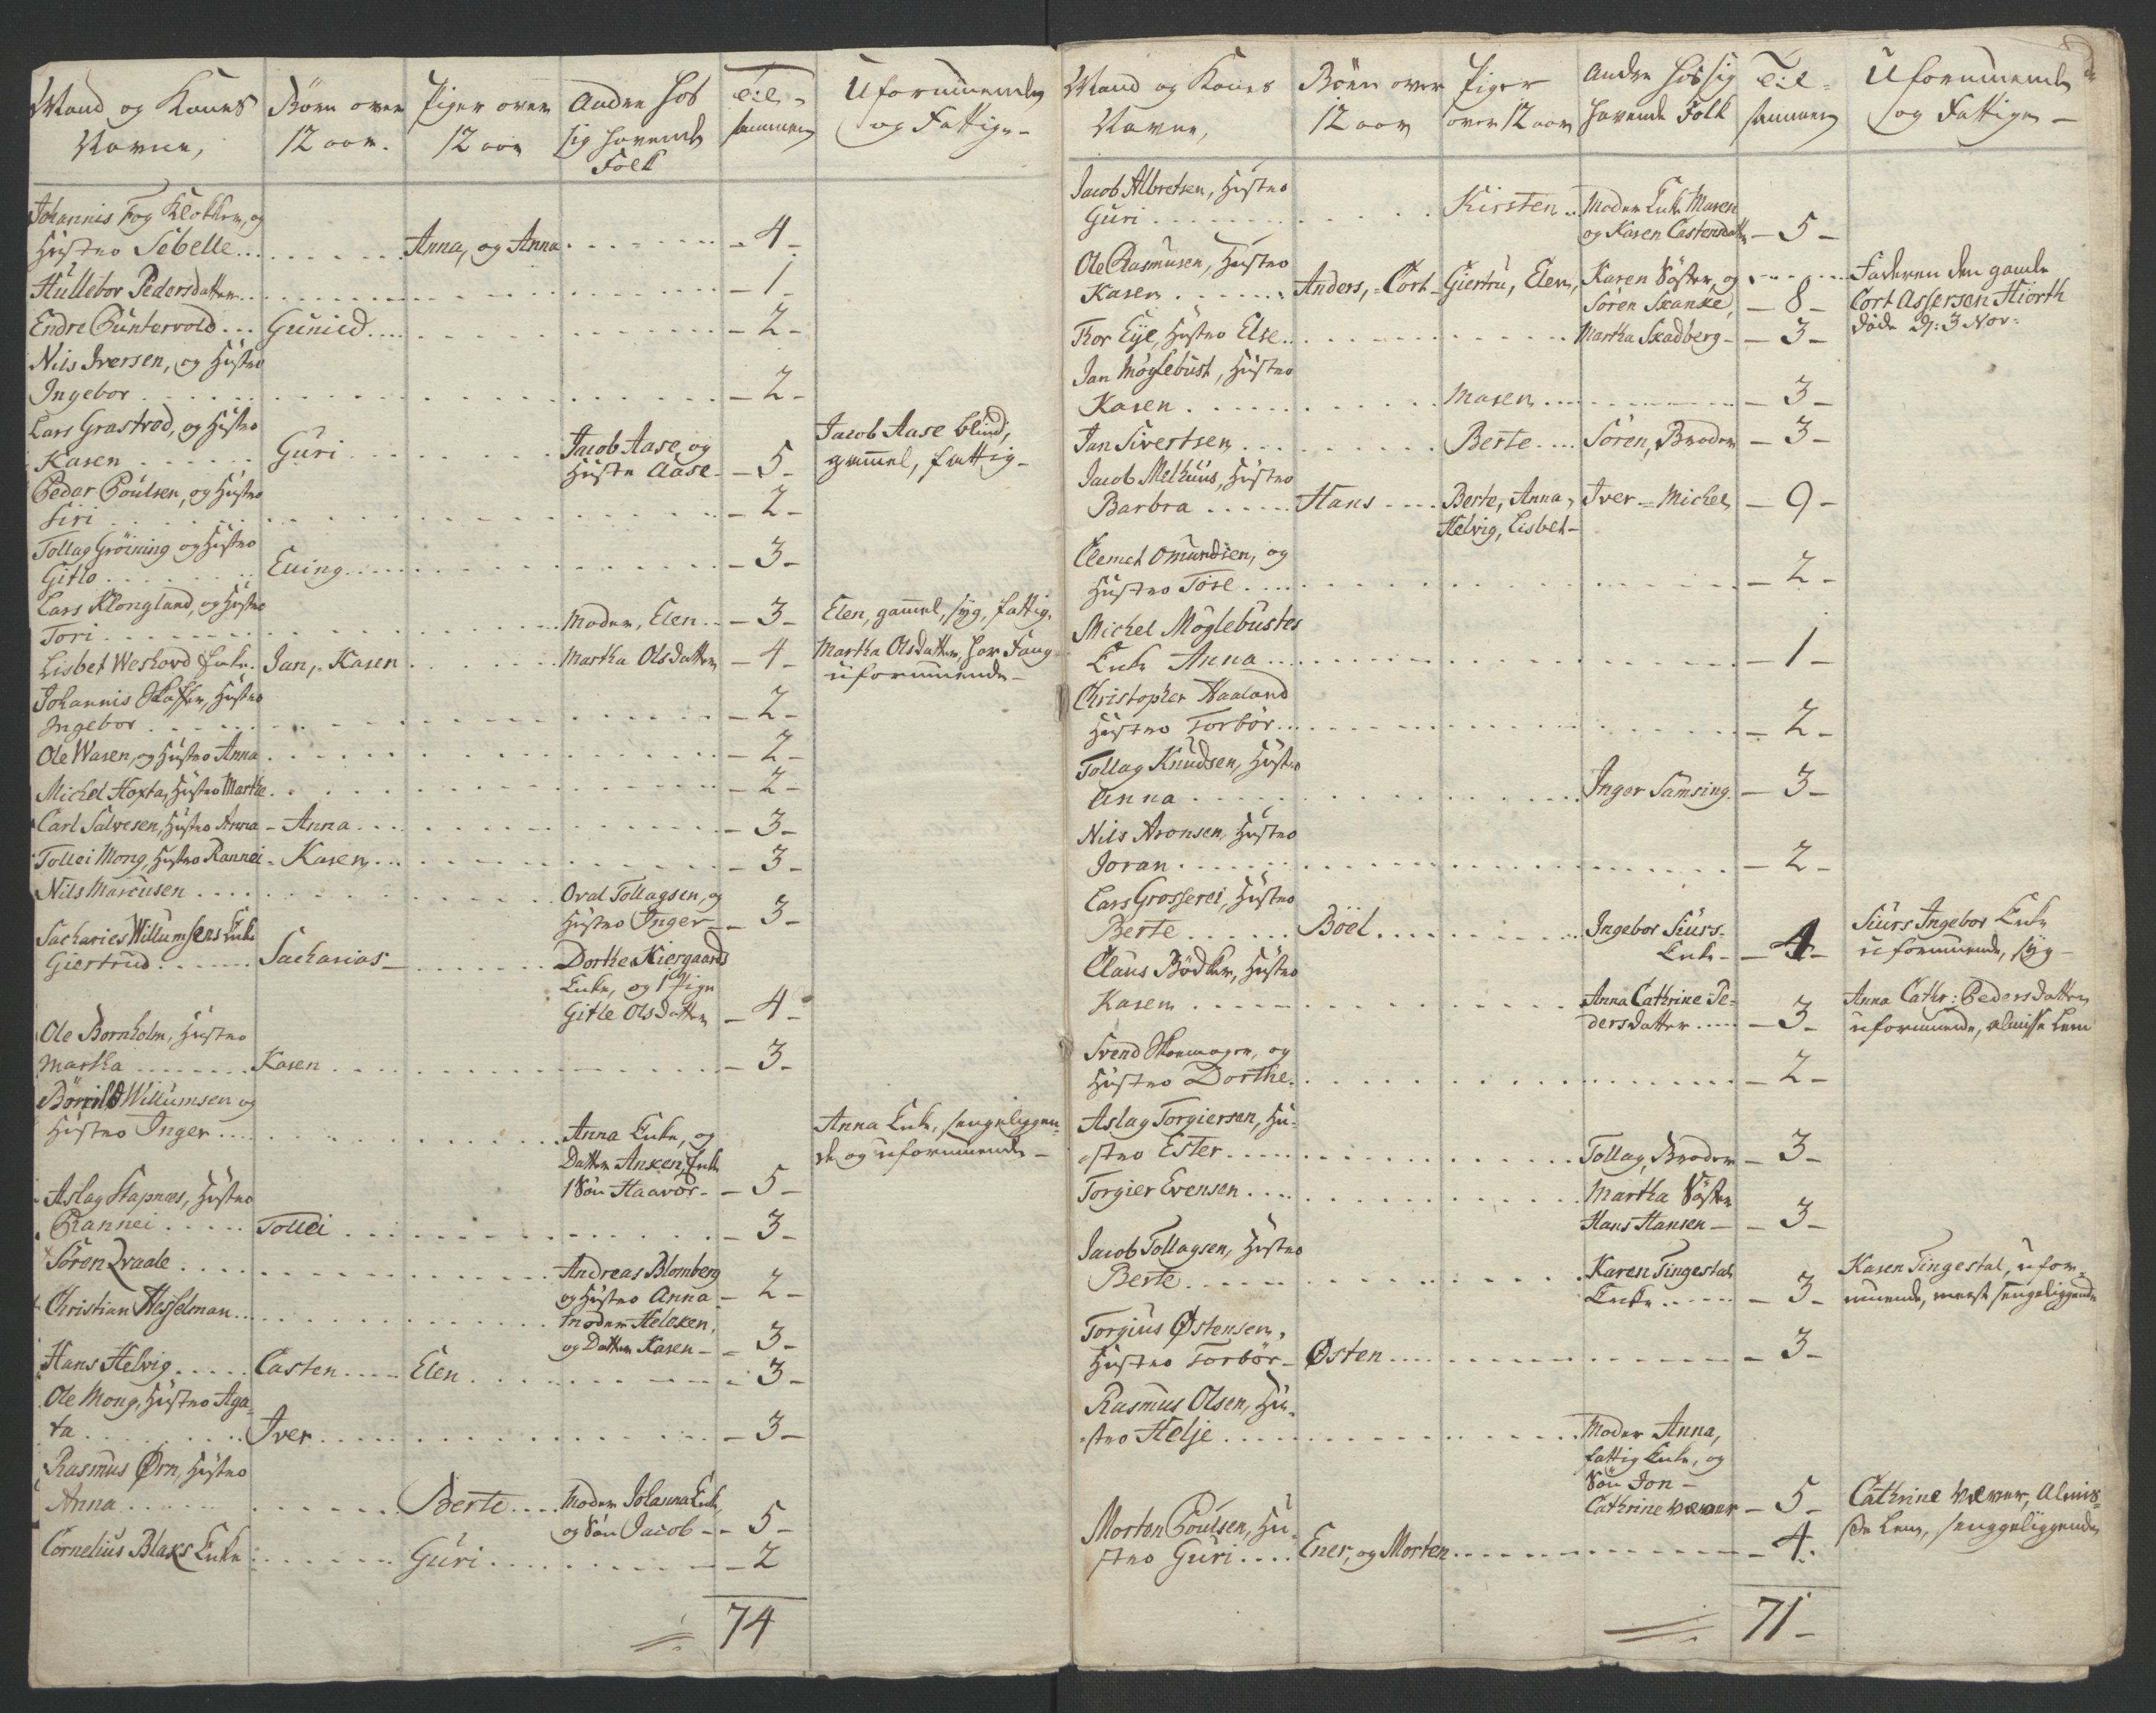 Mand og Kones Börn over Piger over Andre hos Til= Uformuende
Navne, 12 aar. 12 aar sig havende sammen og Fattige-
Folk
Johannis Fog Klokker, og
Hustro Sebelle... Anna, og Anna - 4 -
Hüllebor Pedersdatter - 1 -
Endre Puntervold... Gunild - 2 -
Nils Iversen, og Hustro
Ingebor - 2 -
Lars Grastvod, og Hustro
Karen Guri Jacob Aase, og Jacob Aase blind,
Hustr Aase - 5 - gammel, fattig -
Peder Poulsen, og Hustro
Siri - 2 -
Tollag Gröining og Hustro
Gitlo Euing - 3 -
Lars Klongland, og Hustro
Tori Moder, Elen - 3 - Elen, gammel, syg, fattig.
Lisbet Weshovd Enke. Jan, - Karen Martha Olsdatter - 4 - Martha Olsdatter,
uformuende -
Johannis Hustro
Ingebor - 2 -
Ole Wasen, og Hustro Anna - 2 -
Michel Hoxta, Hustro Marthe - 2 -
Carl Salvesen, Hustro Anna - Anna - 3 -
Tollei Mong, Hustro Rannei - Karen - 3 -
Nils Marcusen Oval Tollagsen, og
Hustro Inger - 3 -
Sacharies Willumsens Enke
Giertrud Sacharias Dorthe Kiergaards
Enke, og 1 Pige
Gitle Olsdatter - 4 -
Ole Bornholm, Hustro
Martha Karen - 3 -
Börrild Willumsen og
Hustro Inger Anna Enke, og Anna Enke, sengeliggen-
Datter Anken, Enke de og uformuende -
1 Sön Haavor - - 5 -
Aslag Stapnæs, Hustro
Rannei Tollei - 3 -
Sören Qvaale Andreas Blomberg
og Hustro Anna - 2 -
Christian Hesselman Moder Heleken,
og Datter Karen - 3 -
Hans Helvig Casten Elen - 3 -
Ole Mong, Hustro Aga-
ta Iver - 3 -
Rasmus Ørn, Hustro
Anna Berte Moder Johanna Enke
og Sön Jacob - - 5 -
Cornelius Blaks Enke Guri - 2
74
Mand og Kones Börn over Piger Andre hos sig Til= Uformuende
Navne, 12 aar over 12 aar havende Folk sammen og Fattige -
Jacob Albretsen, Hustro
Guri Kirsten Moder Enke Maren
og Karen Castensdatter - 5 -
Ole Rasmusen, Hustro
Karen Anders, = Cort Giertru, Elen, Karen Söster, og Faderen den gamle
Sören Skanke, - 8 - Cort Assersen Hiorth
döde d: 3 Nov:
Tor Eye, Hustro Else Martha Skadberg - - 3 -
Jan Möglebust, Hustro
Karen Maren - 3 -
Jan Sivertsen Berte Sören, Broder - 3 -
Jacob Melhuus, Hustro
Barbra Hans Berte, Anna, Iver = Michel - 9 -
Helvig, Lisbet -
Clemet Omundsen, og
Hustro Tose - 2 -
Michel Möglebustes
Enke Anna - 1 -
Christopher Haaland
Hustro Torbör - 2 -
Tollag Knudsen, Hustro
Anna Inger Samsing - 3 -
Nils Aronsen, Hustro
Joran - 2 -
Lars Grosserei, Hustro
Berte Böel Ingebor Siurs- Siurs Ingebor Enke
Enke - - 4 - uformuende, syg -
Claus Bödker, Hustro
Karen Anna Cathrine Pe- Anna Cathr: Pedersdatter
dersdatter - 3 - uformuende, almisse Lem
Svend og
Hustro Dorthe - 2 -
Aslag Torgiersen, Hu-
stro Ester Tollag, Broder - 3 -
Torgier Evensen Martha Söster
Hans Hansen - - 3 -
Jacob Tollagsen, Hustro
Berte Karen Tingestal Karen Tingestal, ufor-
Enke - 3 - muende, meest sengeliggende
Torgius Østensen,
Hustro Torbör - Østen - 3 -
Rasmus Olsen, Hu-
stro Helje Moder Anna,
fattig Enke, og
Sön Jon -
Cathrine Wæver - 5 - Cathrine Wæver, Almis-
se Lem, senggeliggende
Morten Poulsen, Hu-
stro Guri Ener, og Morten - 4 -
71 -